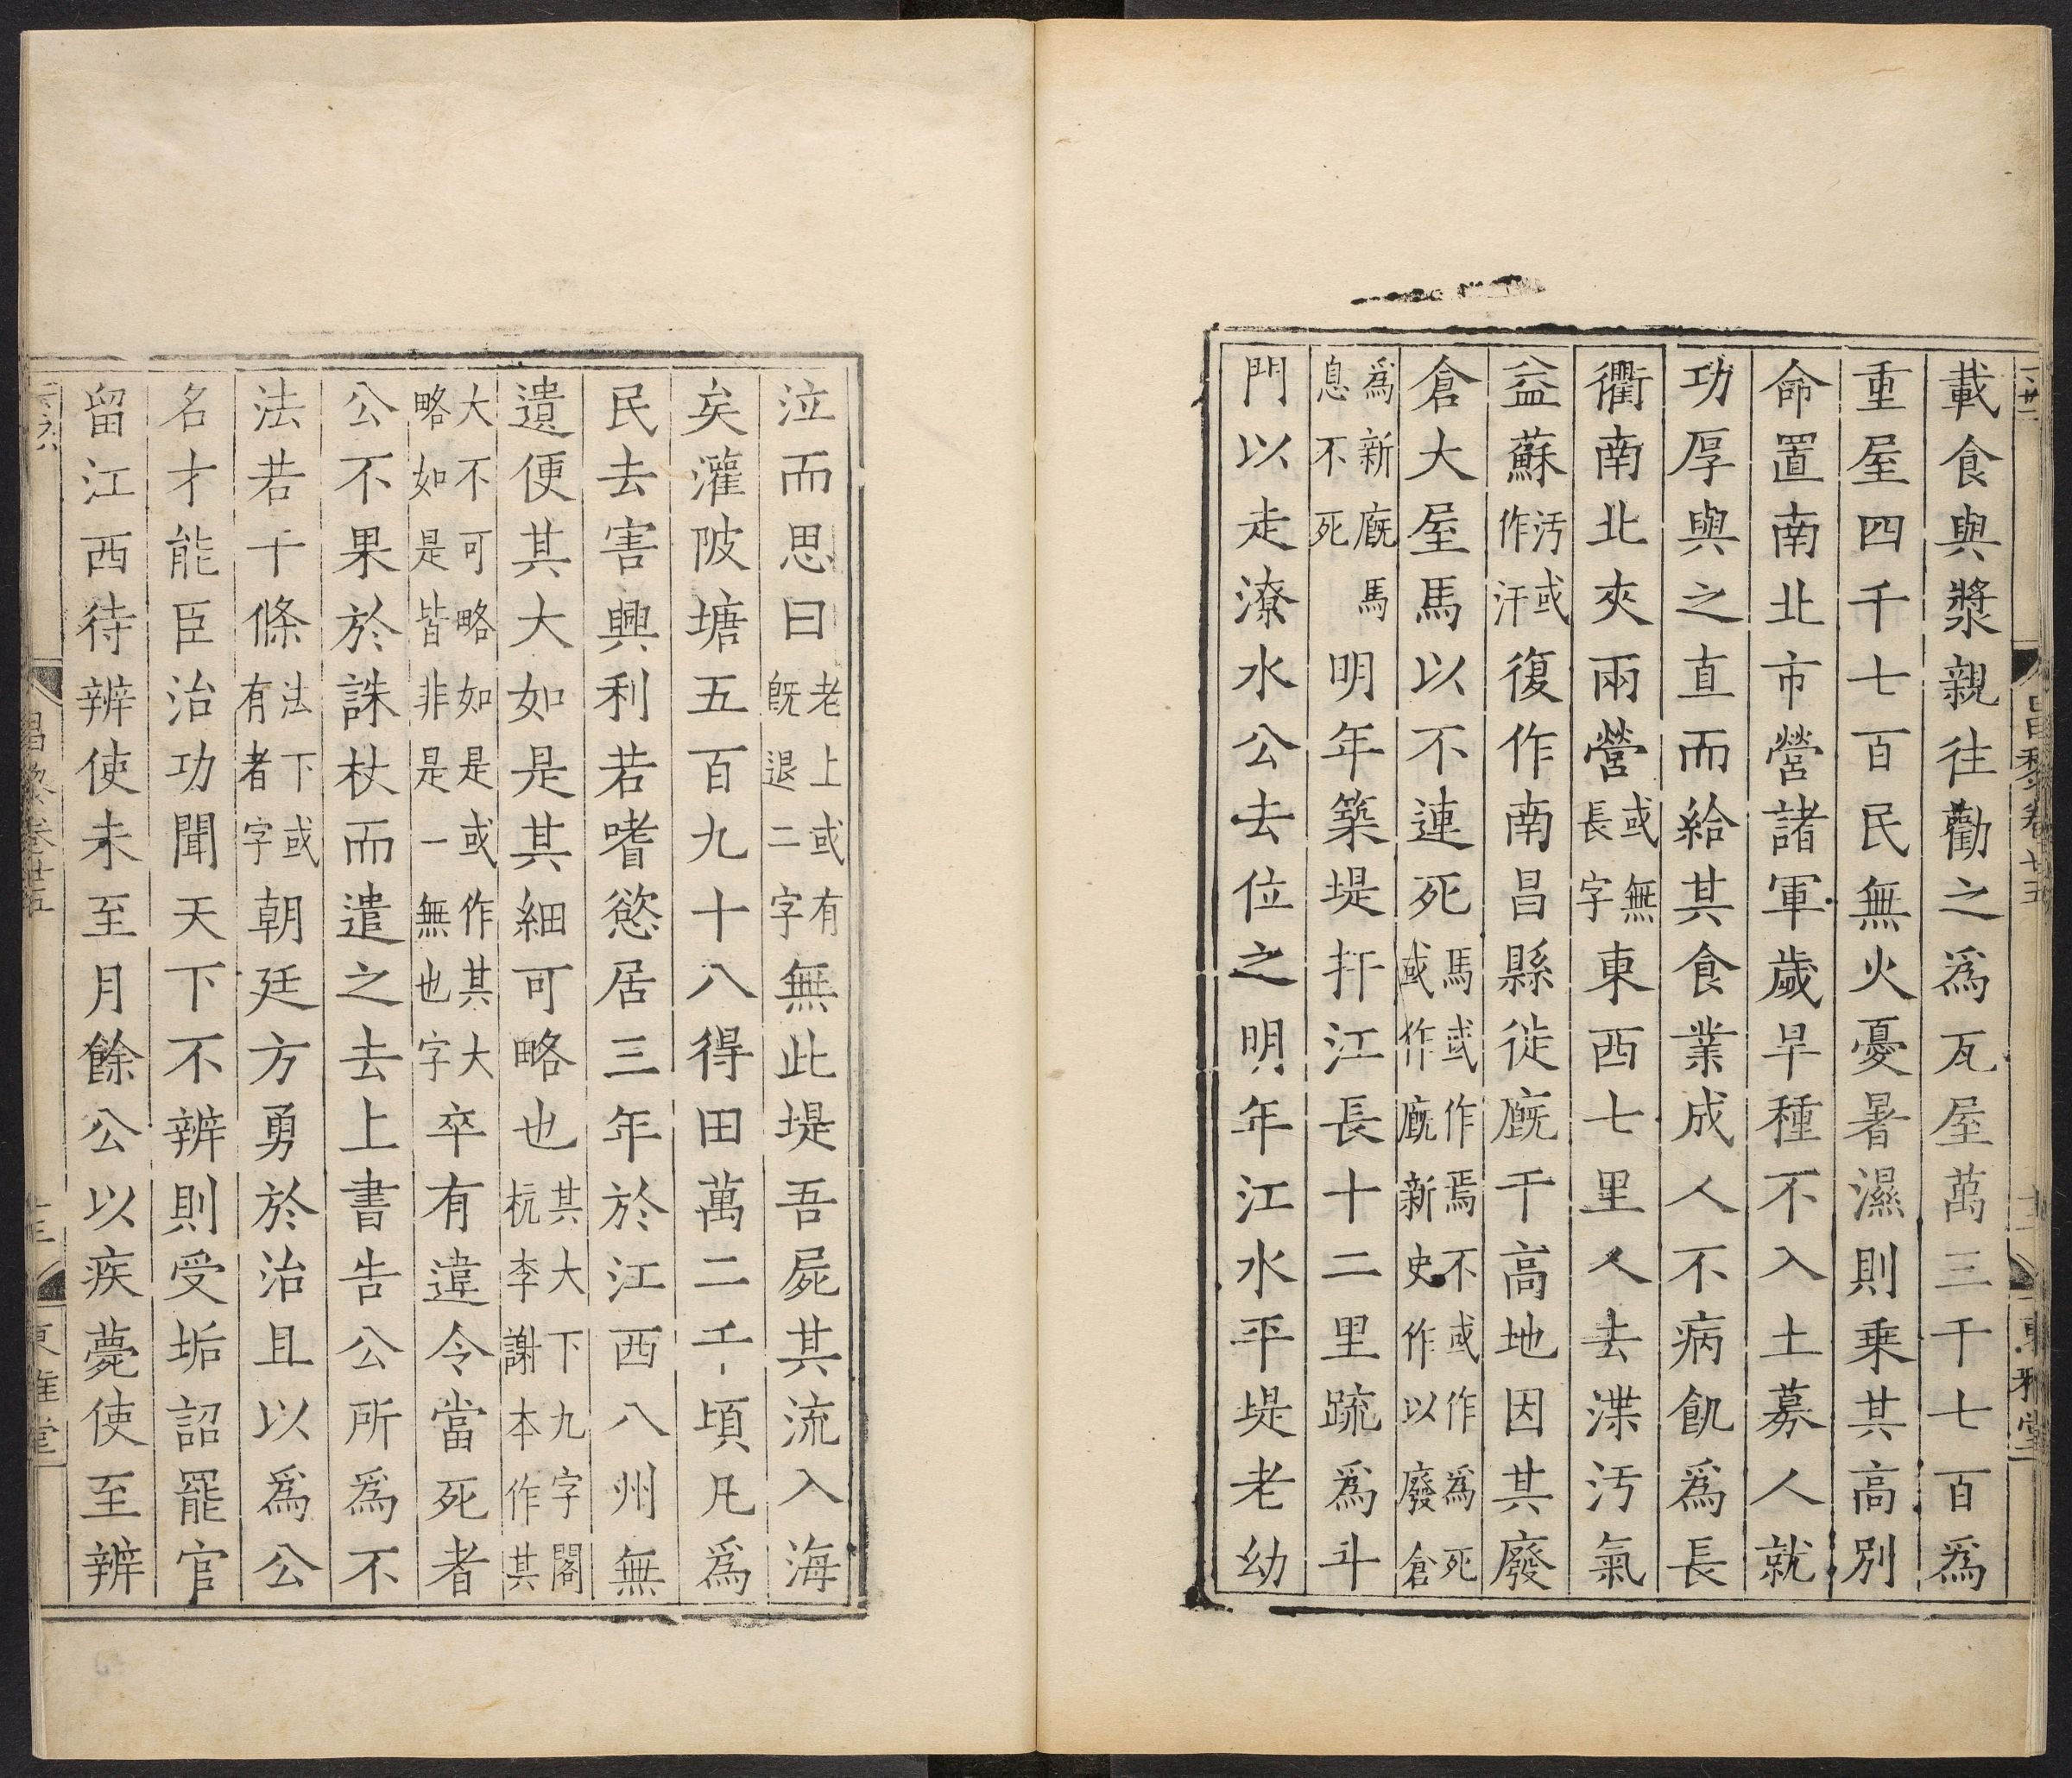 載食與漿親往勸之爲瓦屋萬三千七百爲
重屋四千七百民無火憂暑濕則乘其高別
命置南北市營諸軍歲旱種不入土募人就
功厚與之直而給其食業成人不病飢爲長
衢南北夾兩營或無長字東西七里人去渫汚氣
益蘇汚或作汗復作南昌縣徙廐于高地因其廢
倉大屋馬以不連死馬或作焉不或作爲死或作廐新史作以廢倉
爲新廐馬息不死明年築堤扞江長十二里疏爲斗
門以走潦水公去位之明年江水平堤老幼
泣而思曰老上或有旣退二字無此堤吾屍其流入海
矣灌陂塘五百九十八得田萬二千頃凡爲
民去害興利若嗜慾居三年於江西八州無
遺便其大如是其細可略也其大下九字閣杭李謝本作其
大不可略如是或作其大略如是皆非是一無也字卒有違令當死者
公不果於誅杖而遣之去上書告公所爲不
法若干條法下或有者字朝廷方勇於治且以爲公
名才能臣治功聞天下不辨則受垢詔罷官
留江西待辨使未至月餘公以疾薨使至辨
昌黎卷廿五
東雅堂